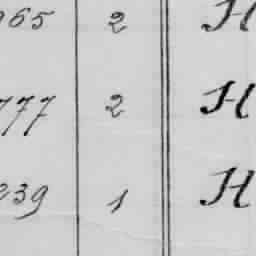 965 2 H
777 2 H
239 1 H